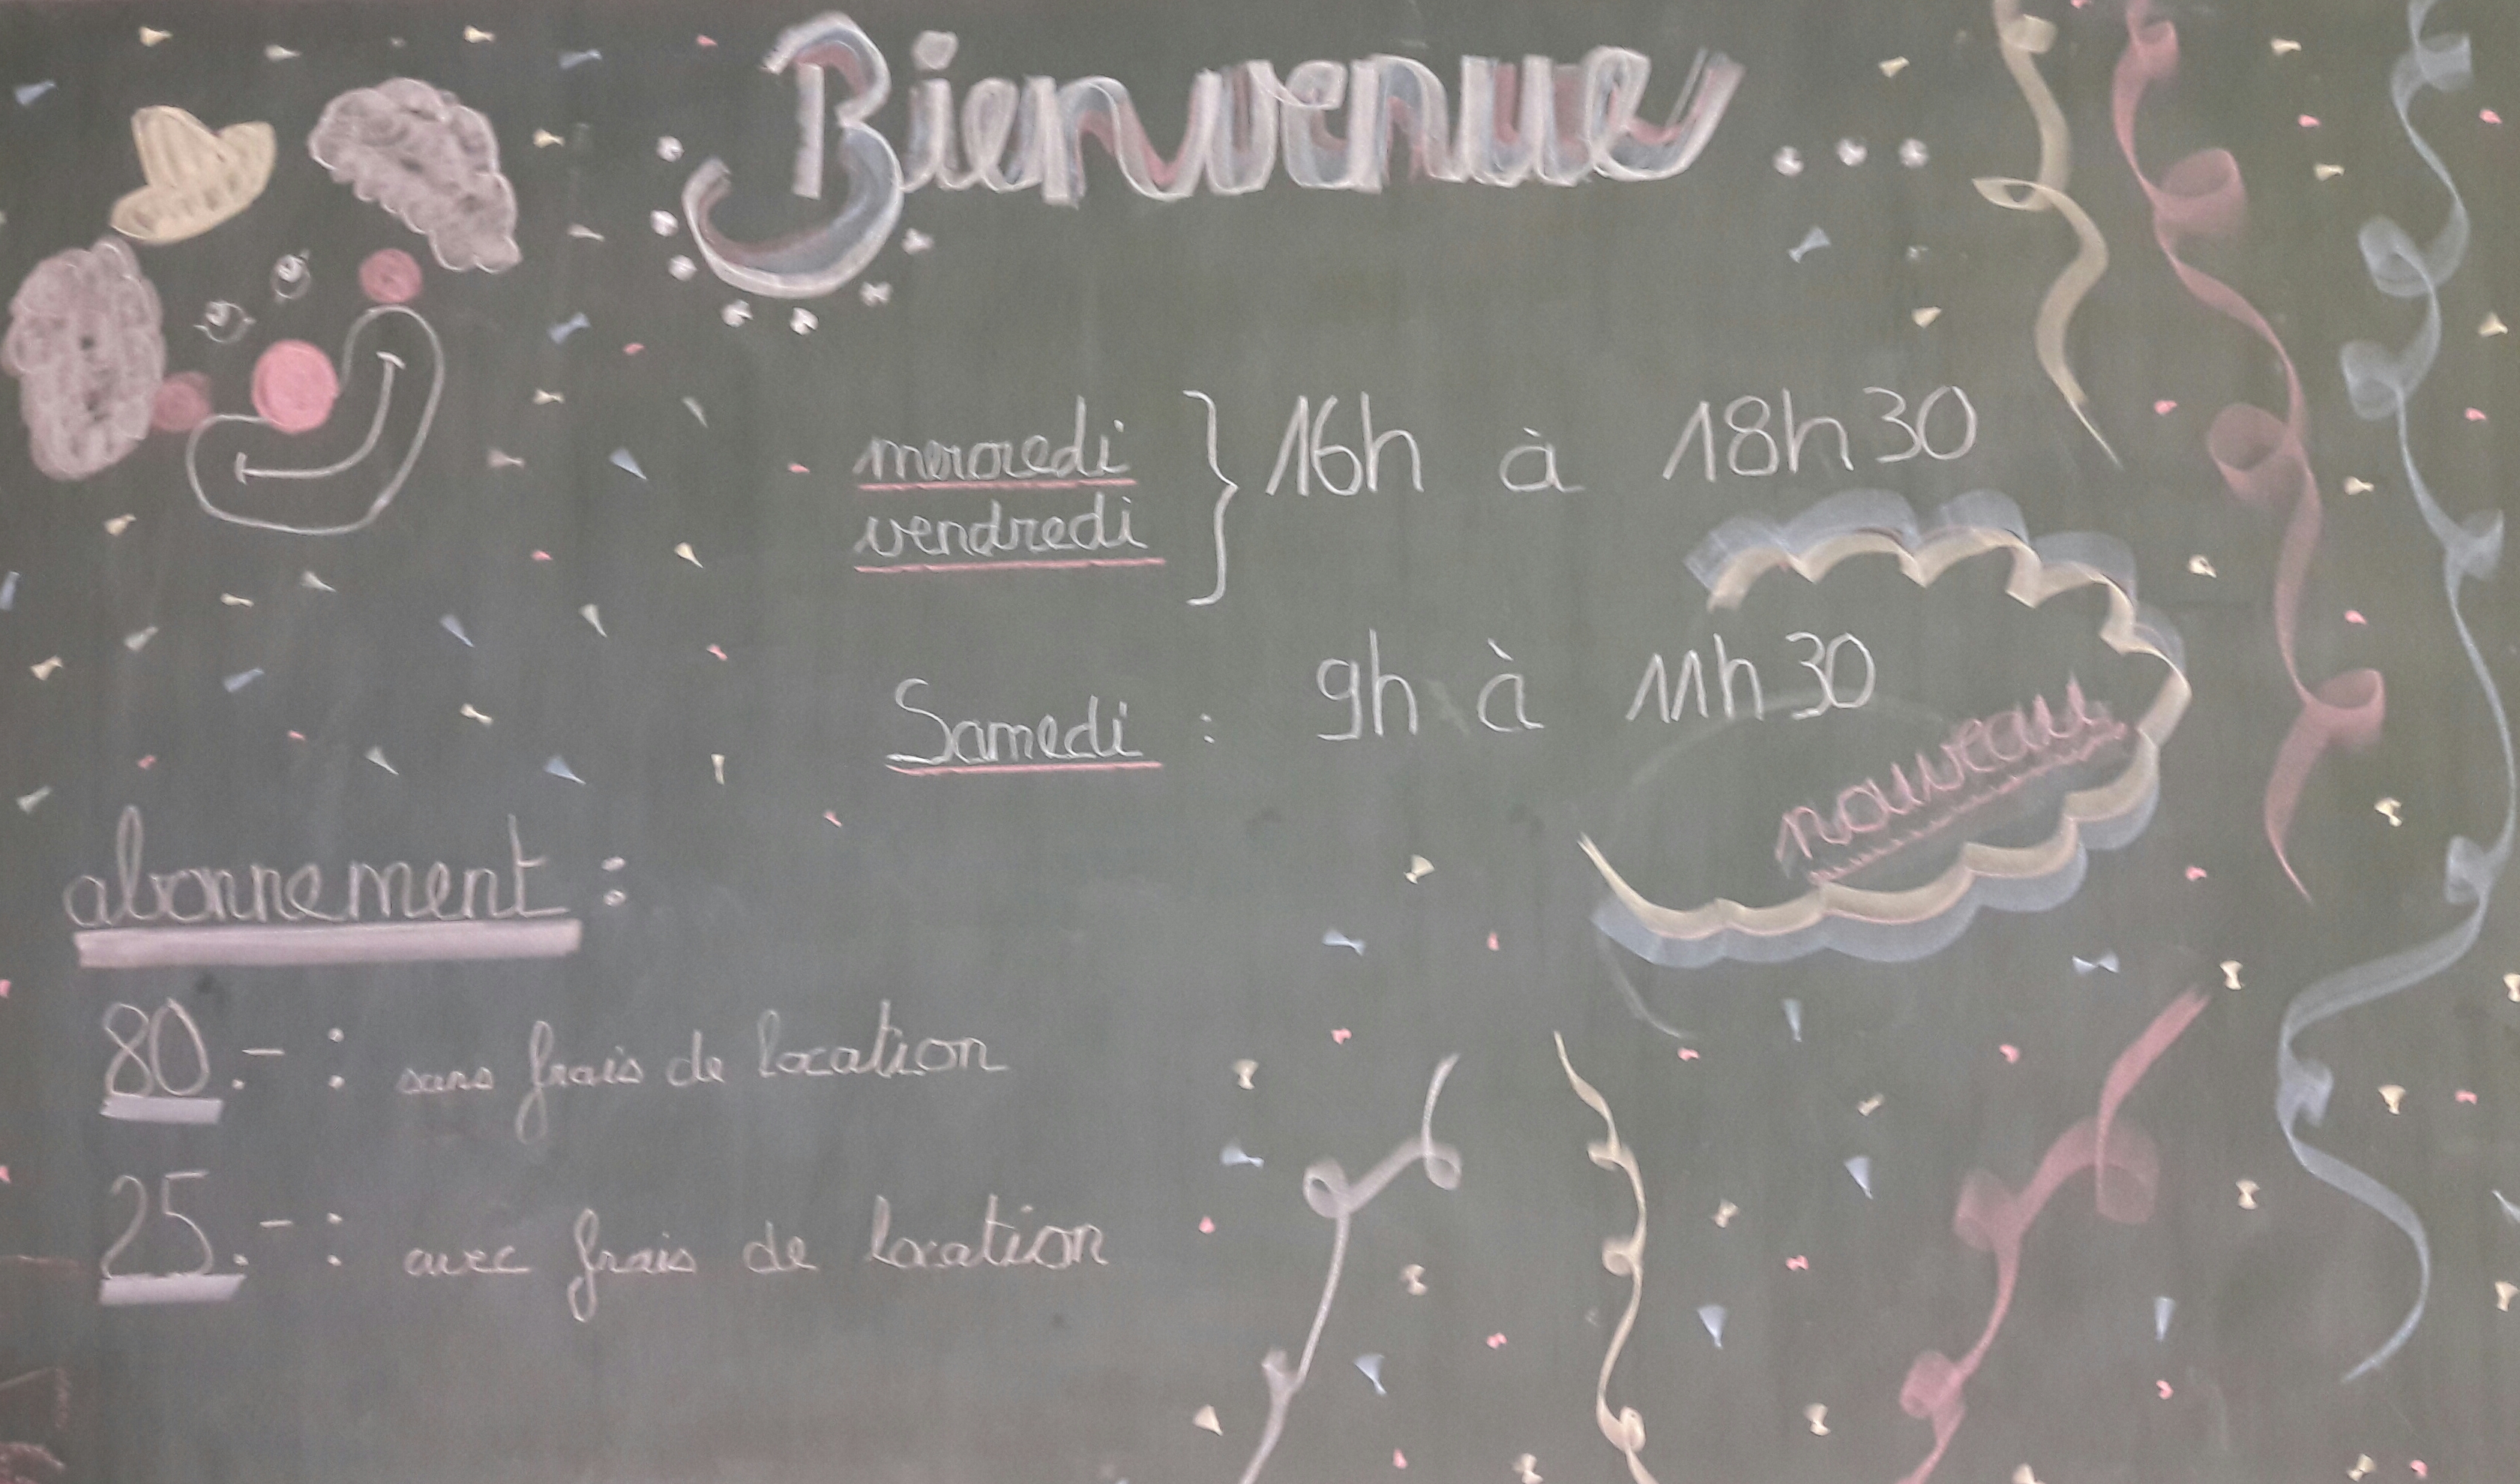 Bienvenue...
mercredi
vendredi } 16h à 18h30
Samedi : 9h à 11h30
nouveau
abonnement :
80.- : sans frais de location
25.- : avec frais de location